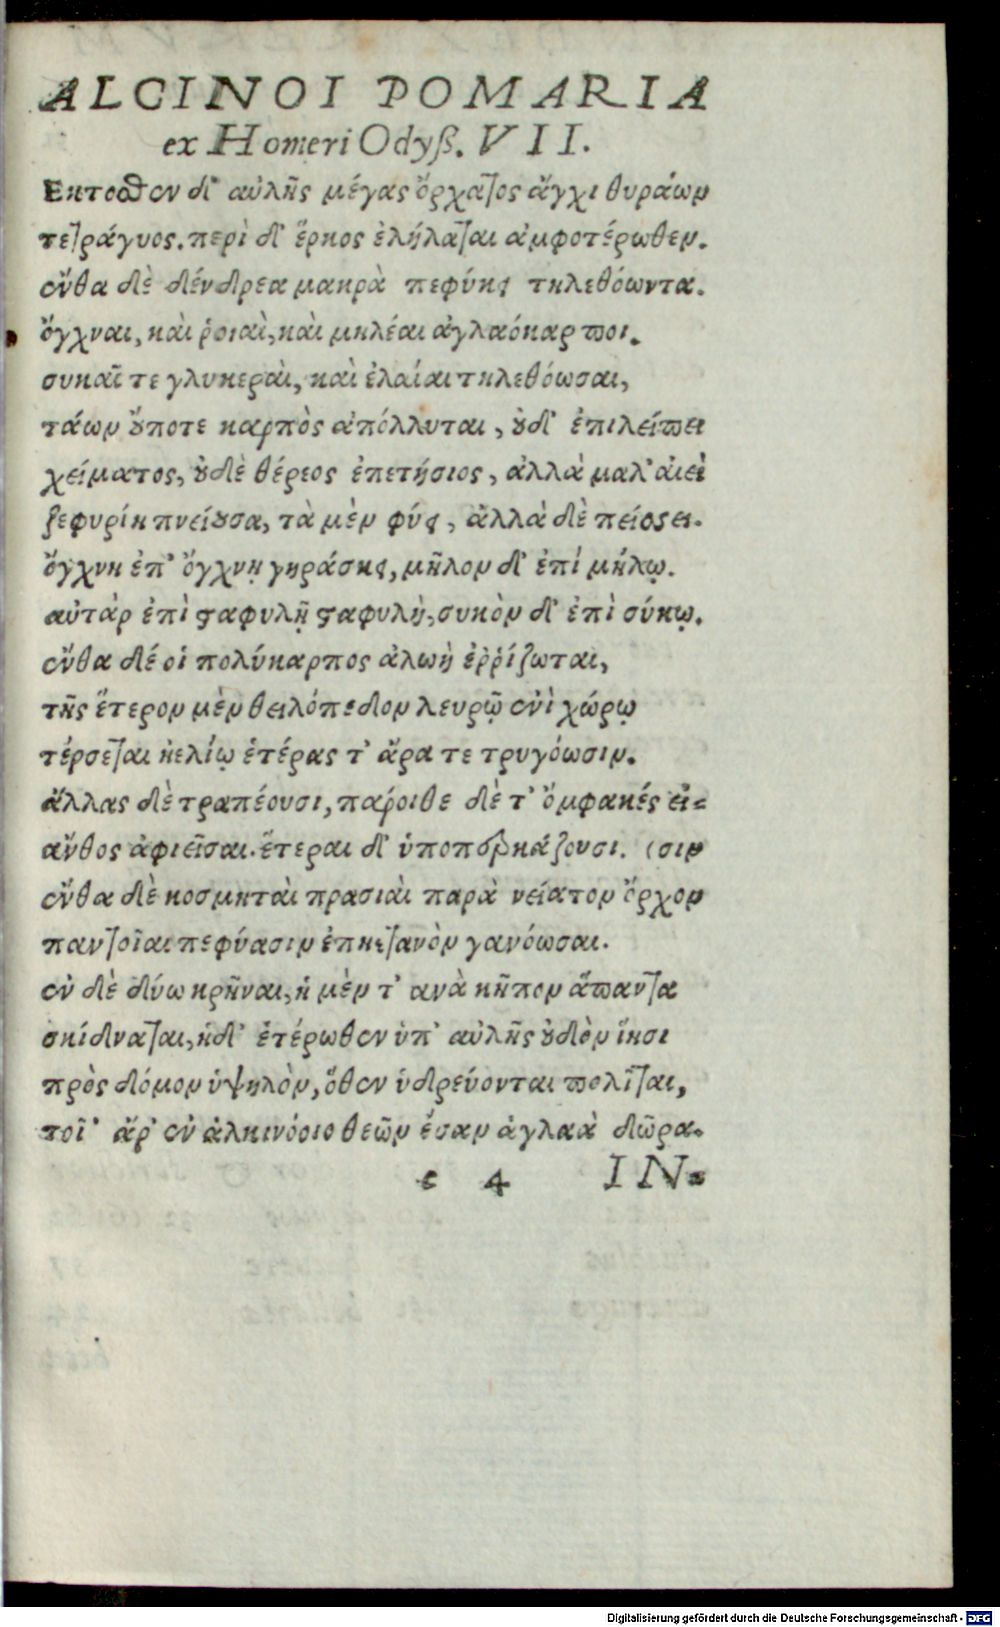 ALCINOI POMARIA
ex Homeri Odyß. VII.
Εκτοσθεν δ᾽ αὐλῆς μέγας ὄρχατος ἄγχι θυράων
τετράγυος. περὶ δ᾽ ἕρκος ἐλήλαται ἀμφοτέρωθεν.
ἔνθα δὲ δένδρεα μακρὰ πεφύκει τηλεθόωντα.
ὄγχναι, καὶ ῥοιαὶ, καὶ μηλέαι ἀγλαόκαρποι.
συκαῖ τε γλυκεραὶ, καὶ ἐλαίαι τηλεθόωσαι,
τάων οὔποτε καρπὸς ἀπόλλυται, οὐδ᾽ ἐπιλείπει
χείματος, οὐδὲ θέρεος ἐπετήσιος, ἀλλὰ μαλ᾽ αἰεὶ
ζεφυρίη πνείουσα, τὰ μὲν φύει, ἀλλὰ δὲ πέσσει.
ὄγχνη ἐπ᾽ ὄγχνῃ γηράσκει, μῆλον δ᾽ ἐπί μήλῳ.
αὐτὰρ ἐπὶ σταφυλῇ σταφυλὴ, συκὸν δ᾽ ἐπὶ σύκῳ.
ἔνθα δέ οἱ πολύκαρπος ἀλωὴ ἐῤῥίζωται,
τῆς ἕτερον μὲν θειλόπεδον λευρῷ ἐνὶ χώρῳ
τέρσεται ἠελίῳ ἑτέρας τ᾽ ἄρα τε τρυγόωσιν.
ἄλλας δὲ τραπέουσι, πάροιθε δὲ τ᾽ ὄμφακές εἰ=
ἄνθος ἀφιεῖσαι. ἕτεραι δ᾽ ὑποπερκάζουσι. (σιν
ἔνθα δὲ κοσμηταὶ πρασιαὶ παρὰ νείατον ὄρχον
παντοῖαι πεφύασιν ἐπηετανὸν γανόωσαι.
ἐν δὲ δύω κρῆναι, ἡ μὲν τ᾽ ανὰ κῆπον ἅπαντα
σκίδναται, ἡδ᾽ ἑτέρωθεν ὑπ᾽ αὐλῆς οὐδὸν ἵησι
πρὸς δόμον ὑψηλὸν, ὅθεν ὑδρεύονται πολῖται,
τοῖ᾽ ἄρ᾽ ἐν ἀλκινόοιο θεῶν ἔσαν ἀγλαὰ δῶρα.
e 4 IN=
Digitalisierung gefördert durch die Deutsche Forschungsgemeinschaft - DFG